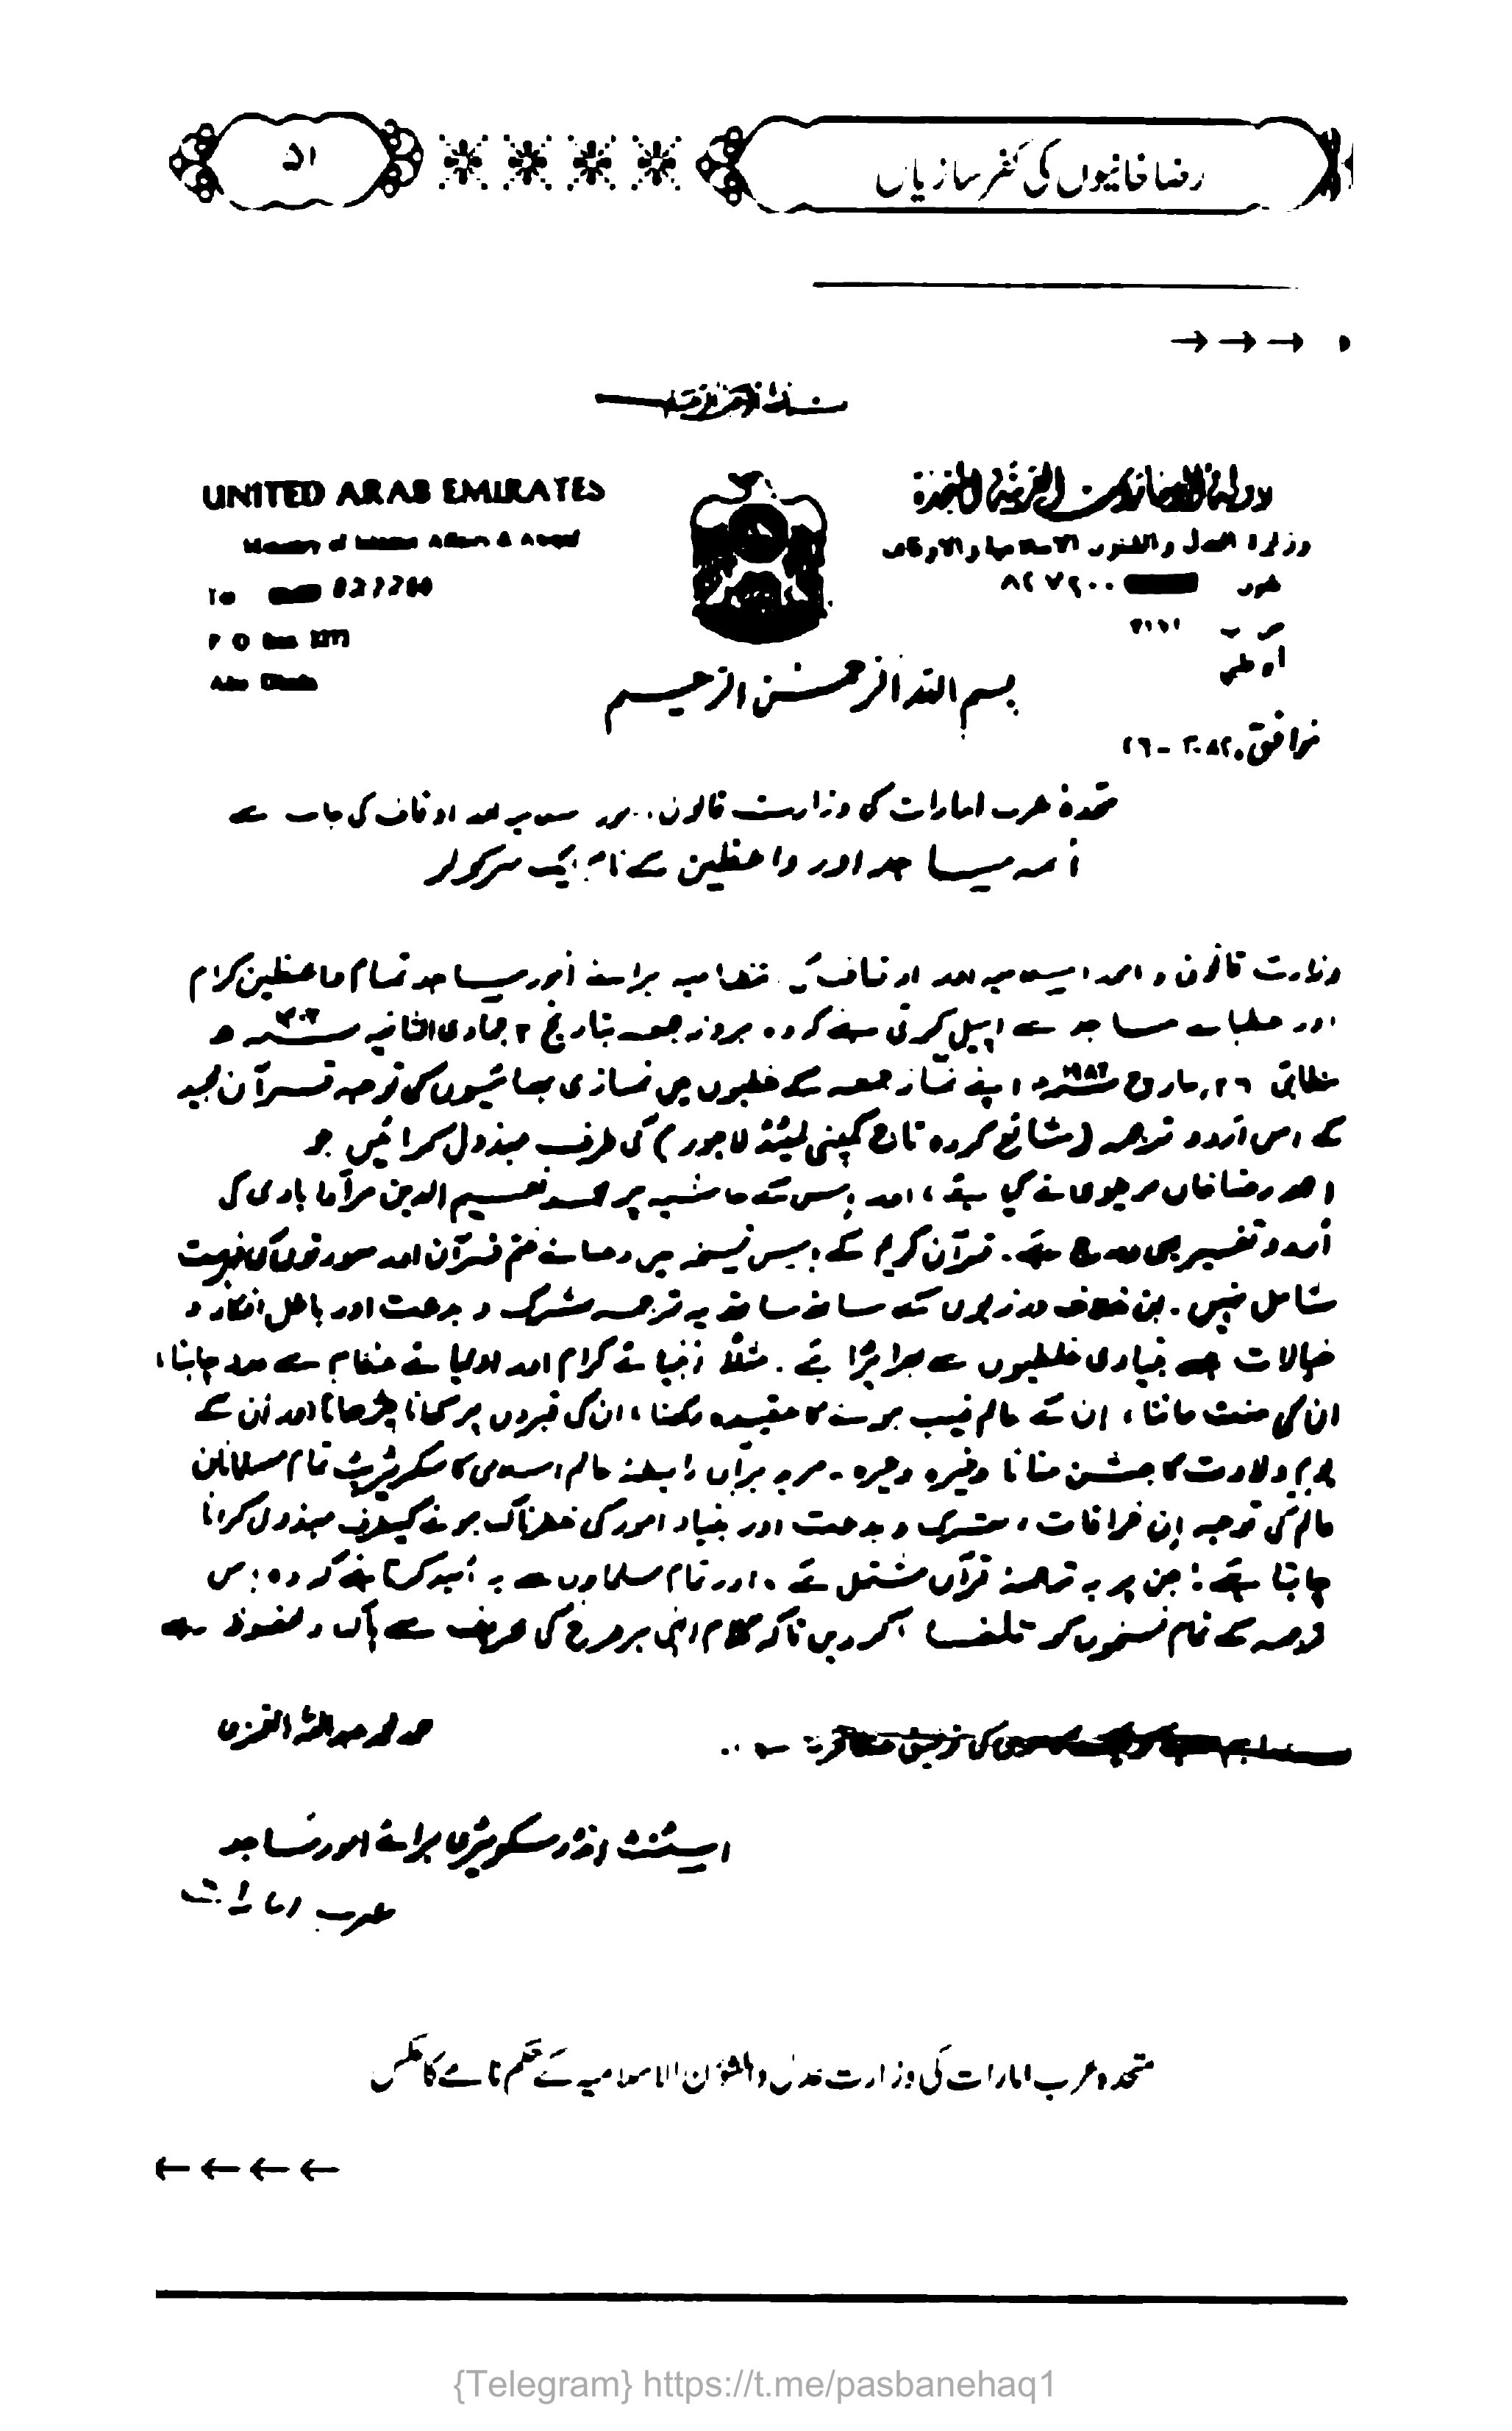 رضا خانیوں کی کفر سازیاں
۵۱
بسم اللہ الرحمن الرحیم
UNITED ARAB EMIRATES
دولة الامارات العربية المتحدة
وزارة العدل والشئون الاسلامية والاوقاف
P O Box
Abu Dhabi
ابوظبی
بسم اللہ الرحمٰن الرحیم
متحدہ عرب امارات کی وزارت قانون اور اوقاف کی جانب سے
ائمہ مساجد اور واعظین کے نام ایک سرکولر
وزارت قانون و امور اسلامیہ اور اوقاف کی برائے امور مساجد تمام واعظین کرام
اور خطبائے مساجد سے اپیل کرتی ہے کہ وہ بروز جمعہ بتاریخ ۲ جمادی الثانیہ
مطابق ۲۶ مارچ ۱۹۸۲ اپنے نماز جمعہ کے خطبوں میں نمازی بھائیوں کی توجہ قرآن مجید
کے اس اردو ترجمہ (شائع کردہ تاج کمپنی لمیٹڈ لاہور) کی طرف مبذول کرائیں جو
احمد رضا خاں بریلوی نے کیا ہے، اور جس کے حاشیہ پر محمد نعیم الدین مرادآبادی کی
اردو تفسیر بھی درج ہے۔ قرآن کریم کے اس نسخہ میں دعائے ختم قرآن اور سورتوں کی فہرست
شامل نہیں۔ ان خلاف ورزیوں کے ساتھ ساتھ یہ ترجمہ شرک و بدعت اور باطل افکار و
خیالات جیسے بنیادی غلطیوں سے بھرا پڑا ہے۔ مثلاً انبیائے کرام اور اولیائے عظام سے مدد چاہنا،
ان کی منت ماننا، ان کے عالم غیب ہونے کا عقیدہ رکھنا، ان کی قبروں پر کھانا چڑھانا اور ان کے
یوم ولادت کا جشن منانا وغیرہ وغیرہ۔ مزید برآں رابطہ عالم اسلامی کا سکریٹریٹ تمام مسلمانان
عالم کی توجہ ان خرافات، شرک و بدعت اور بنیاد امور کی خطرناک ہونے کیطرف مبذول کرانا
چاہتا ہے؛ جن پر یہ ترجمہ قرآن مشتمل ہے۔ اور تمام مسلمانوں سے یہ امید کرتا ہے کہ وہ اس
ترجمہ کے تمام نسخوں کو تلف کر دیں تاکہ کلام الٰہی ہر طرح کی تحریف سے پاک و محفوظ رہے
محمد عبداللہ
کی
اسسٹنٹ انڈر سکریٹری برائے امور مساجد
عرب امارات
متحدہ عرب امارات کی وزارت عدل والشؤن الاسلامیہ کے حکم نامے کا عکس
{Telegram} https://t.me/pasbanehaq1